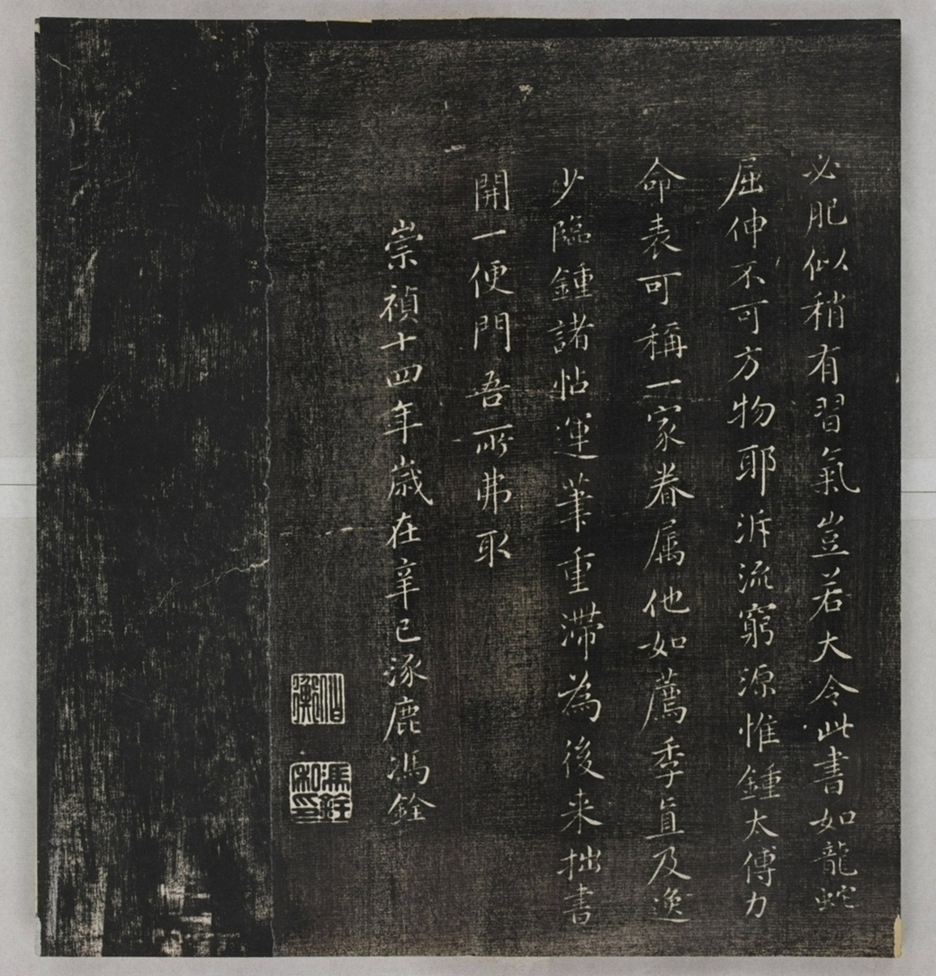 必肥似稍有習氣豈若大令此書如龍蛇
屈伸不可方物耶泝流窮源惟鍾太傅力
命表可稱一家眷属他如薦季直及逸
少臨鍾諸帖運筆重滯為後来拙書
開一便門吾所弗取
崇禎十四年歲在辛巳涿鹿馮銓
馮銓私印